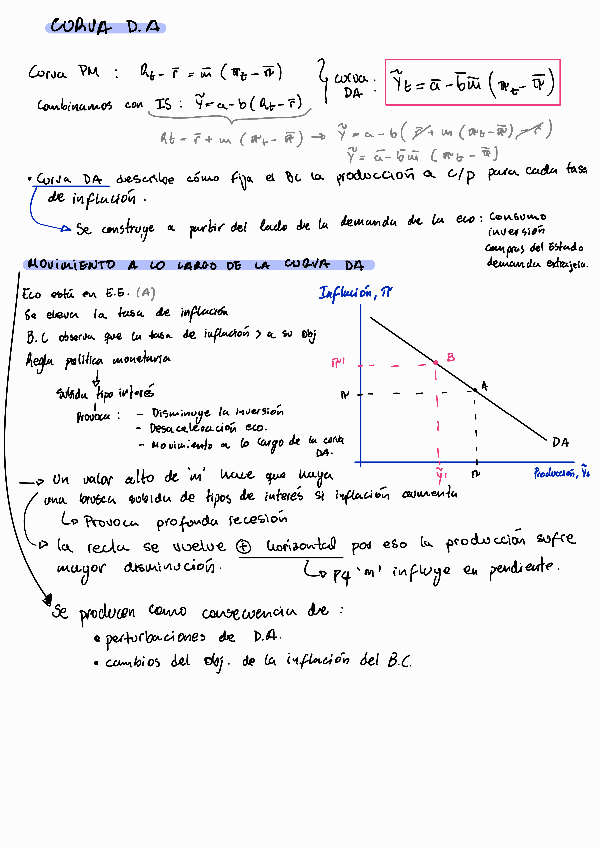 CURVA D.A
Curva PM : Rt - r̄ = m̄ (πt - π̄)
Combinamos con IS : Ỹ = a - b (Rt - r̄)
curva DA : Ỹt = ā - b̄m̄ (πt - π̄)
Rt = r̄ + m (πt - π̄) → Ỹ = a - b ( r̄ + m (πt - π̄) - r̄ )
Ỹ = ā - b̄m̄ (πt - π̄)
• Curva DA describe cómo fija el BC la producción a c/p para cada tasa
de inflación.
Se construye a partir del lado de la demanda de la eco: consumo
inversión
compras del Estado
demanda extranjera.
MOVIMIENTO A LO LARGO DE LA CURVA DA
Eco está en E.E. (A)
Se eleva la tasa de inflación
B.C observa que la tasa de inflación > a su obj
Regla política monetaria
↓
subida tipo interés
Provoca : - Disminuye la inversión
- Desaceleración eco.
- Movimiento a lo largo de la curva
DA.
Inflación, π
π'
B
π
A
DA
Ỹ'
π
Producción, Ỹt
→ Un valor alto de 'm' hace que haya
una brusca subida de tipos de interés si inflación aumenta
↳ Provoca profunda recesión
→ la recta se vuelve ⊕ horizontal por eso la producción sufre
mayor disminución.
↳ pq 'm' influye en pendiente.
Se producen como consecuencia de :
• perturbaciones de D.A.
• cambios del obj. de la inflación del B.C.